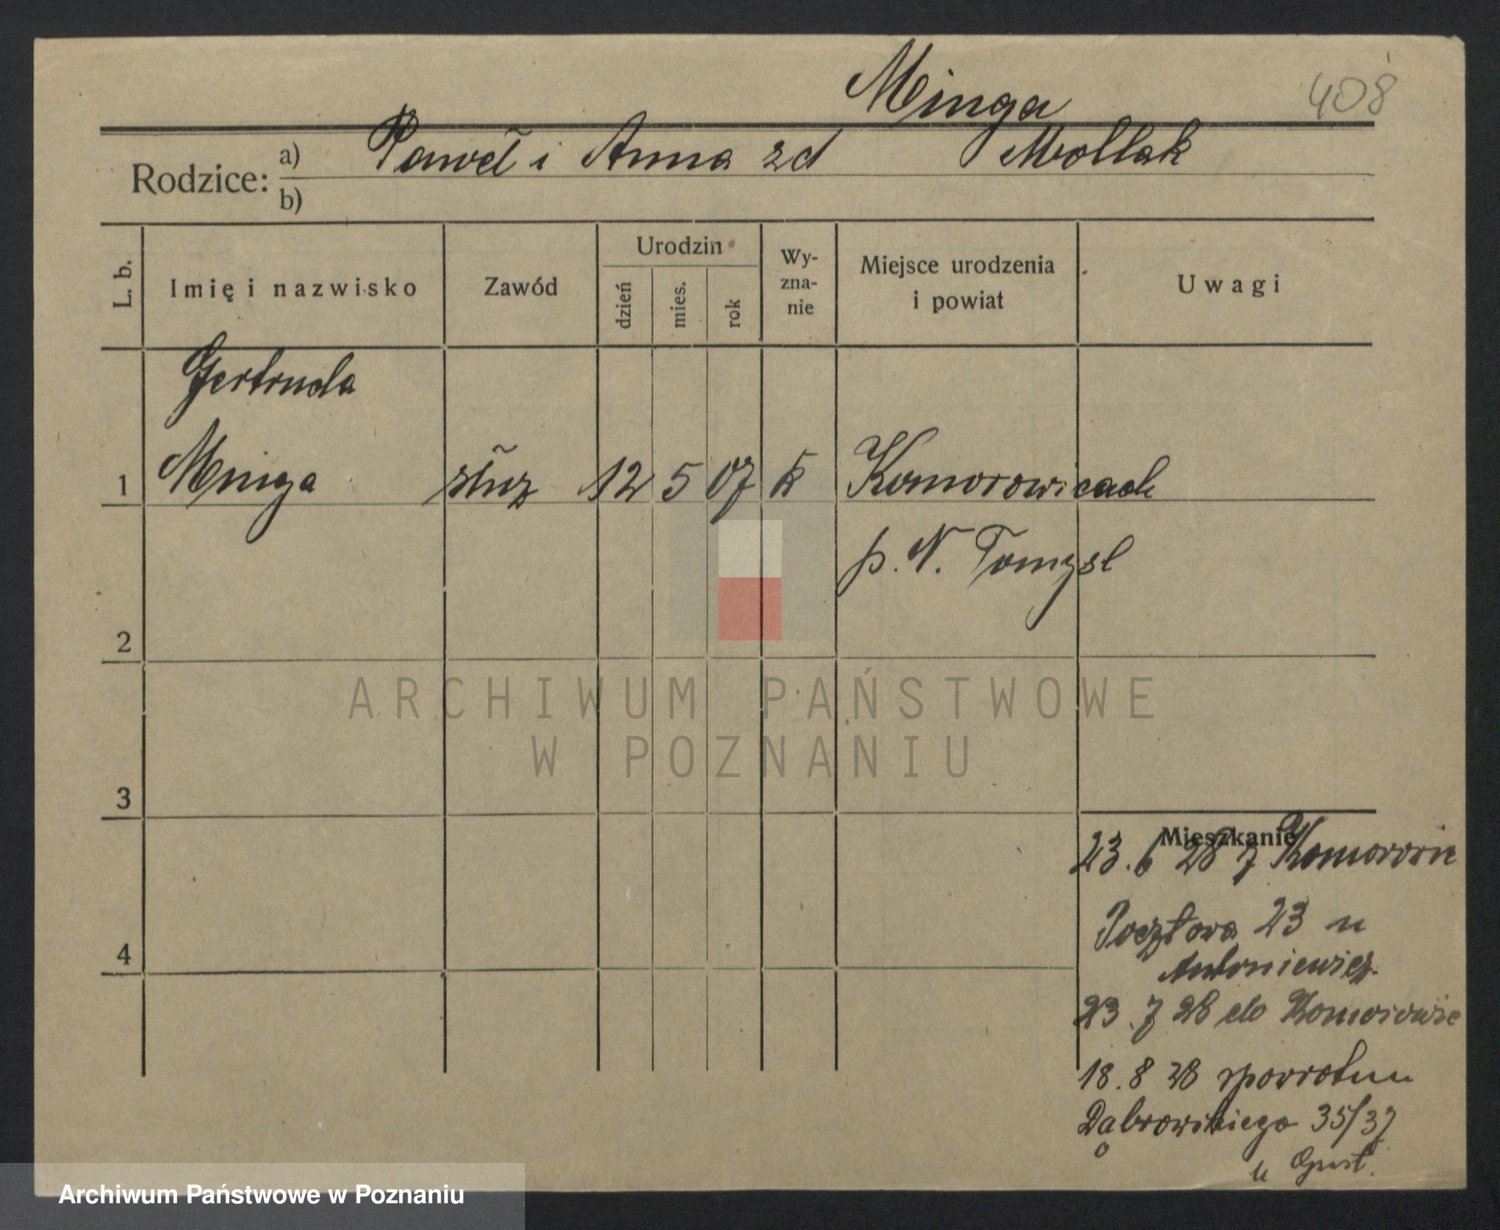 Minga
408
Rodzice:
a) Paweł i Anna zd Mollak
b)
L. b.
Imię i nazwisko
Zawód
Urodzin
dzień
mies.
rok
Wy-
zna-
nie
Miejsce urodzenia
i powiat
Uwagi
Gertruda
1 Minga służ 12 5 07 k Komorowicach
p. N. Tomysl
2
3
4
Mieszkanie
23.6 28 z Komorowic
Pocztowa 23 u
Antoniewicz
23.7 28 do Komorowic
18.8 28 spowrotem
Dąbrowskiego 35/37
u
ARCHIWUM PAŃSTWOWE
W POZNANIU
Archiwum Państwowe w Poznaniu